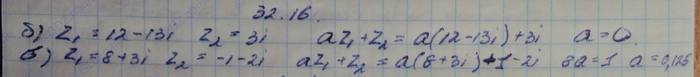 32.16.
б) Z₁ = 12-13i Z₂ = 3i aZ₁+Z₂ = a(12-13i)+3i a=0
в) Z₁ = 8+3i Z₂ = -1-2i aZ₁+Z₂ = a(8+3i)-1-2i 8a=1 a=0,125